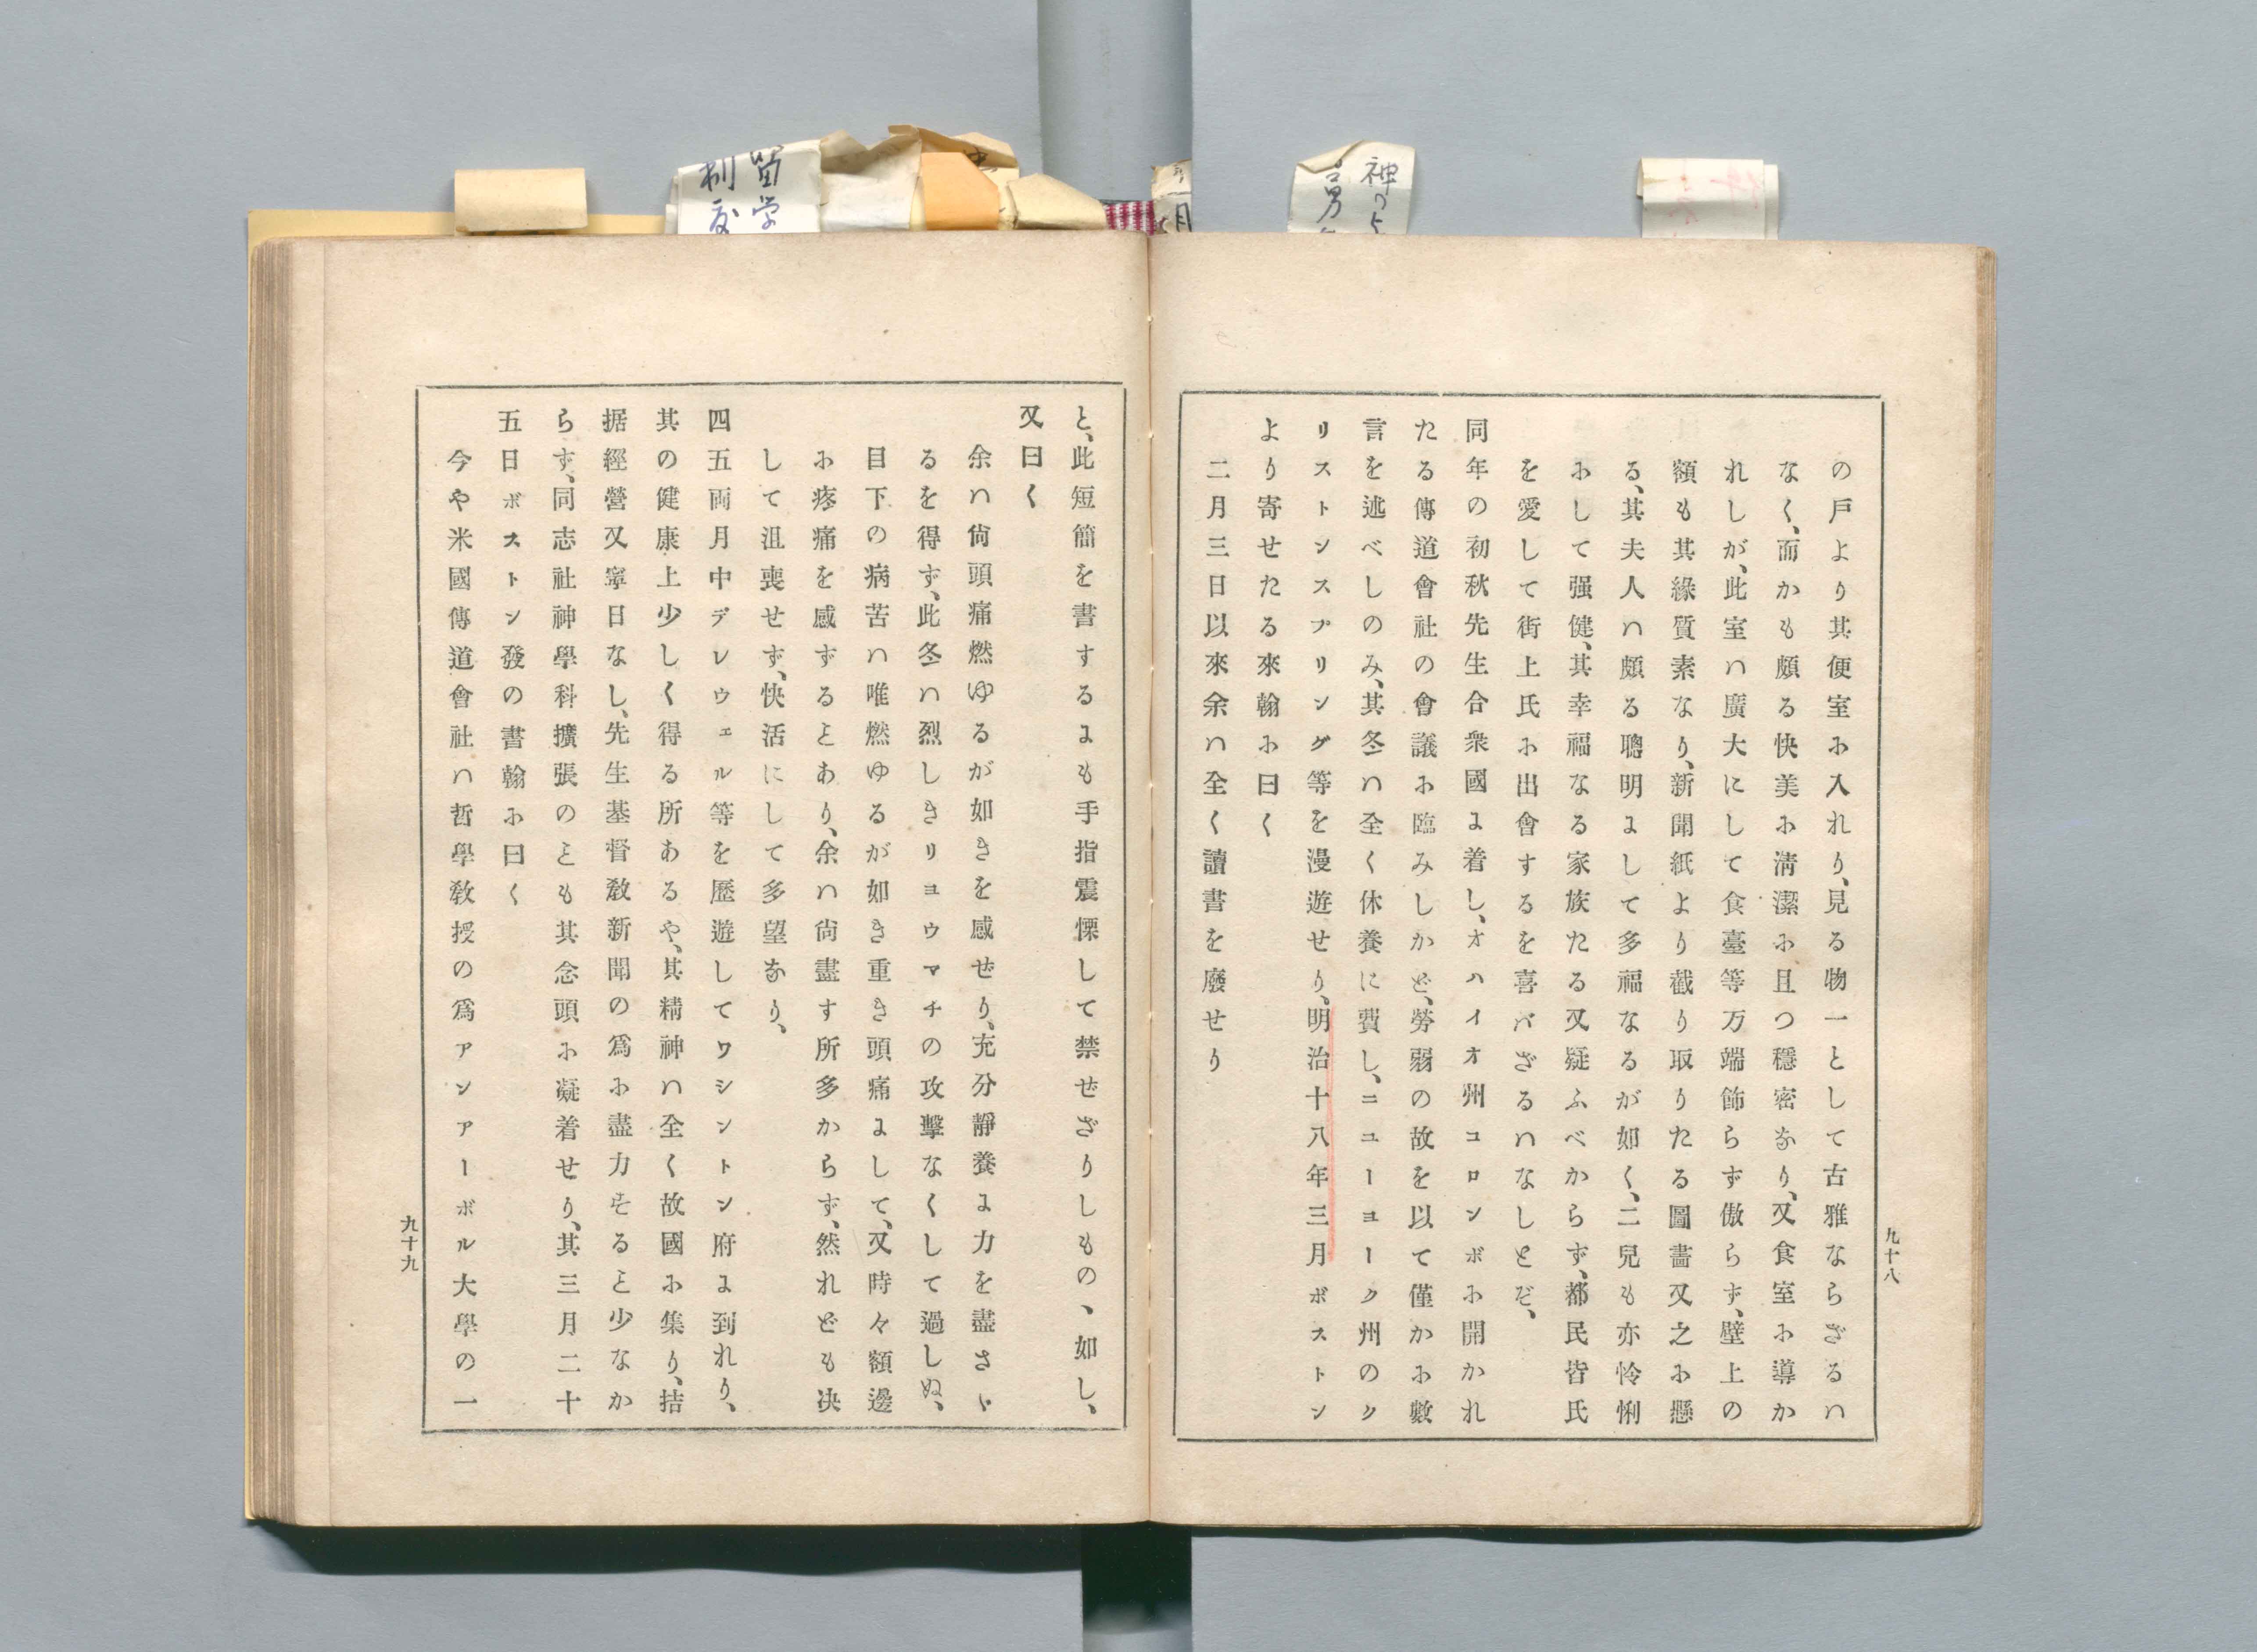 の戸より其便室に入れり、見る物一として古雅ならざるハ
なく、而かも頗る快美に淸潔に且つ穩密なり、又食室に導か
れしが、此室ハ廣大にして食臺等万端飾らず傲らず、壁上の
額も其緣質素なり、新聞紙より截り取りたる圖畵又之に懸
る、其夫人ハ頗る聰明にして多福なるが如く、二兒も亦怜悧
にして强健、其幸福なる家族たる又疑ふべからず、都民皆氏
を愛して街上氏に出會するを喜バざるハなしとぞ、
同年の初秋先生合衆國に着し、オハイオ州コロンボに開かれ
たる傳道會社の會議に臨みしかど、勞弱の故を以て僅かに數
言を述べしのみ、其冬ハ全く休養に費し、ニユーヨーク州のク
リストンスプリング等を漫遊せり、明治十八年三月ボストン
より寄せたる來翰に曰く
二月三日以來余ハ全く讀書を廢せり
九十八
と、此短簡を書するにも手指震慄して禁ぜざりしもの、如し、
又曰く
余ハ尙頭痛燃ゆるが如きを感ぜり、充分靜養に力を盡さゝ
るを得ず、此冬ハ烈しきリヨウマチの攻擊なくして過しぬ、
目下の病苦ハ唯燃ゆるが如き重き頭痛にして、又時々額邊
に疼痛を感ずるヿあり、余ハ尙盡す所多からず、然れども决
して沮喪せず、快活にして多望なり、
四五両月中デレウェル等を歷遊してワシントン府に到れり、
其の健康上少しく得る所あるや、其精神ハ全く故國に集り、拮
据經營又寧日なし、先生基督敎新聞の爲に盡力せるヿ少なか
らず、同志社神學科擴張のヿも其念頭に凝着せり、其三月二十
五日ボストン發の書翰に曰く
今や米國傳道會社ハ哲學敎授の爲アンアーボル大學の一
九十九
留学
制度
神のよ